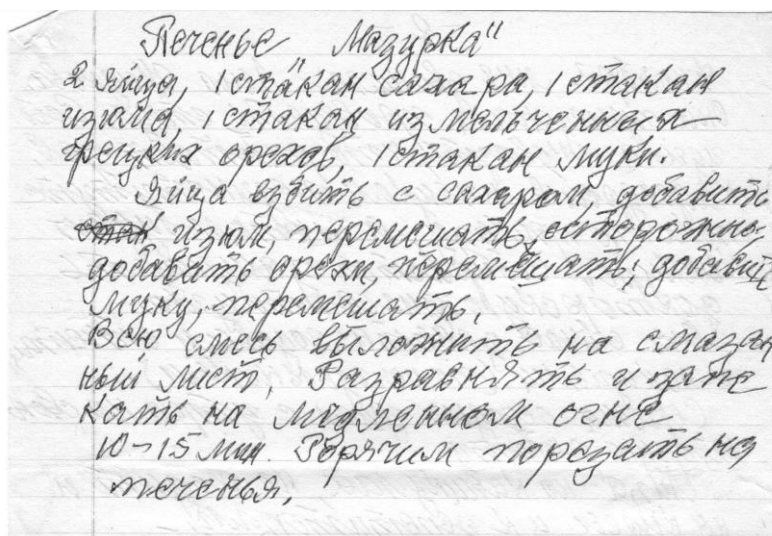 Печенье "Мазурка"
2 яйца, 1 стакан сахара, 1 стакан
изюма, 1 стакан измельченных
грецких орехов, 1 стакан муки.
Яйца взбить с сахаром, добавить
изюм, перемешать, осторожно
добавить орехи, перемешать; добавить
муку, перемешать.
Всю смесь выложить на смазан
ный лист. Разравнять и запе
кать на медленном огне
10-15 мин. Горячим порезать на
печенья.